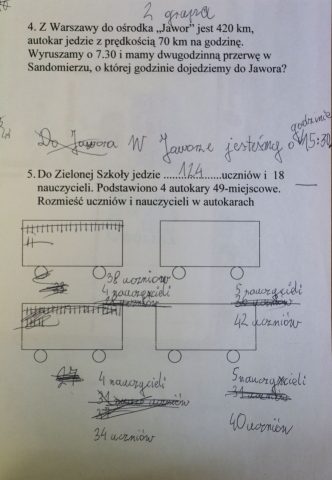 2 grupa
4. Z Warszawy do ośrodka „Jawor” jest 420 km,
autokar jedzie z prędkością 70 km na godzinę.
Wyruszamy o 7.30 i mamy dwugodzinną przerwę w
Sandomierzu, o której godzinie dojedziemy do Jawora?
godzinie
Do Jawora W Jaworze jesteśmy o 15:30
5. Do Zielonej Szkoły jedzie ...124...uczniów i 18
nauczycieli. Podstawiono 4 autokary 49-miejscowe.
Rozmieść uczniów i nauczycieli w autokarach
38 uczniów
4 nauczycieli
5 nauczycieli
42 uczniów
4 nauczycieli
5 nauczycieli
34 uczniów
40 uczniów